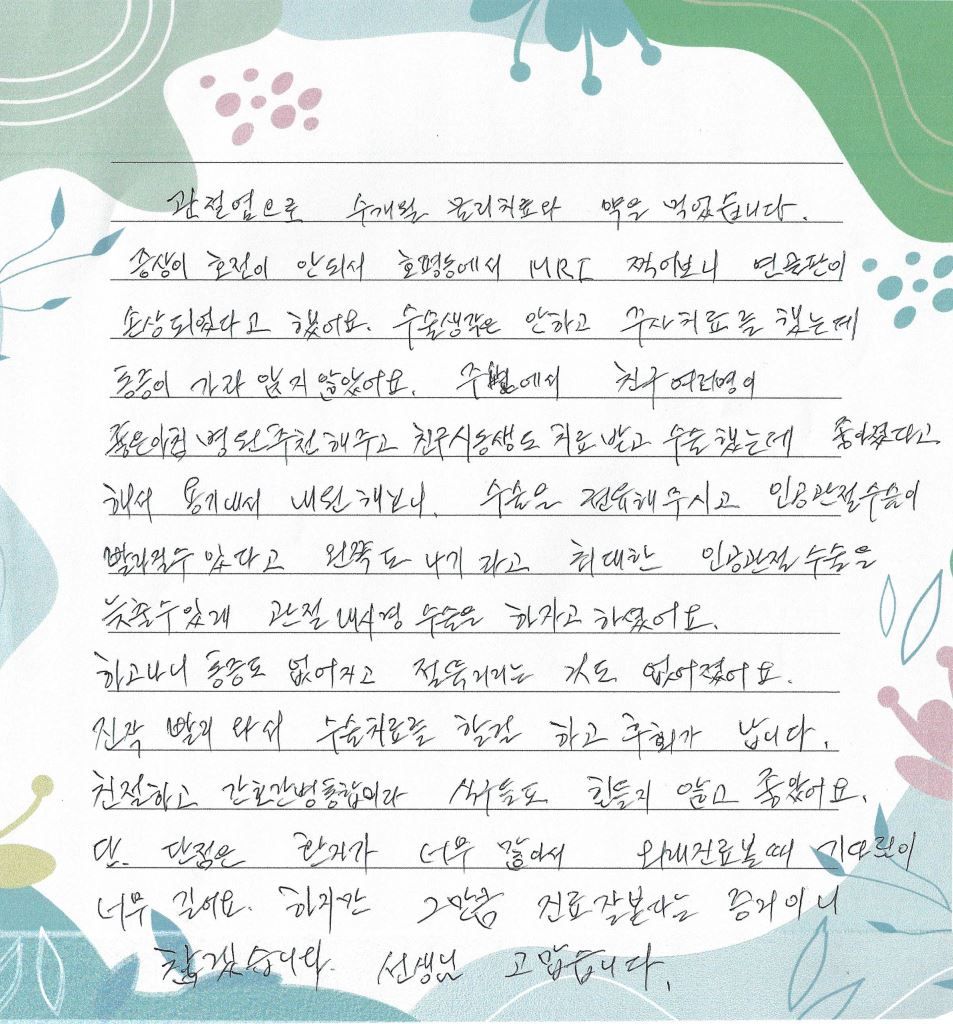 관절염으로 수개월 물리치료와 약을 먹었습니다.
증상이 호전이 안되서 호평동에서 MRI 찍어보니 연골판이
손상되었다고 했어요. 수술생각은 안하고 주사치료를 했는데
통증이 가라 앉지 않았어요. 주변에서 친구 여러명이
좋은아침 병원 추천해주고 친구시동생도 치료받고 수술했는데 좋아졌다고
해서 용기내서 내원해보니, 수술은 권유해주시고 인공관절수술이
빨라질수 있다고 왼쪽도 나기 라고 최대한 인공관절 수술을
늦출수있게 관절 내시경 수술을 하자고 하셨어요.
하고나니 통증도 없어지고 절뚝거리는 것도 없어졌어요.
진작 빨리 와서 수술치료를 할걸 하고 후회가 납니다.
친절하고 간호간병통합이라 식구들도 힘들지 않고 좋았어요.
단. 단점은 환자가 너무 많아서 외래진료볼때 기다림이
너무 길어요. 하지만 그만큼 진료잘본다는 증거이니
참겠습니다. 선생님 고맙습니다.